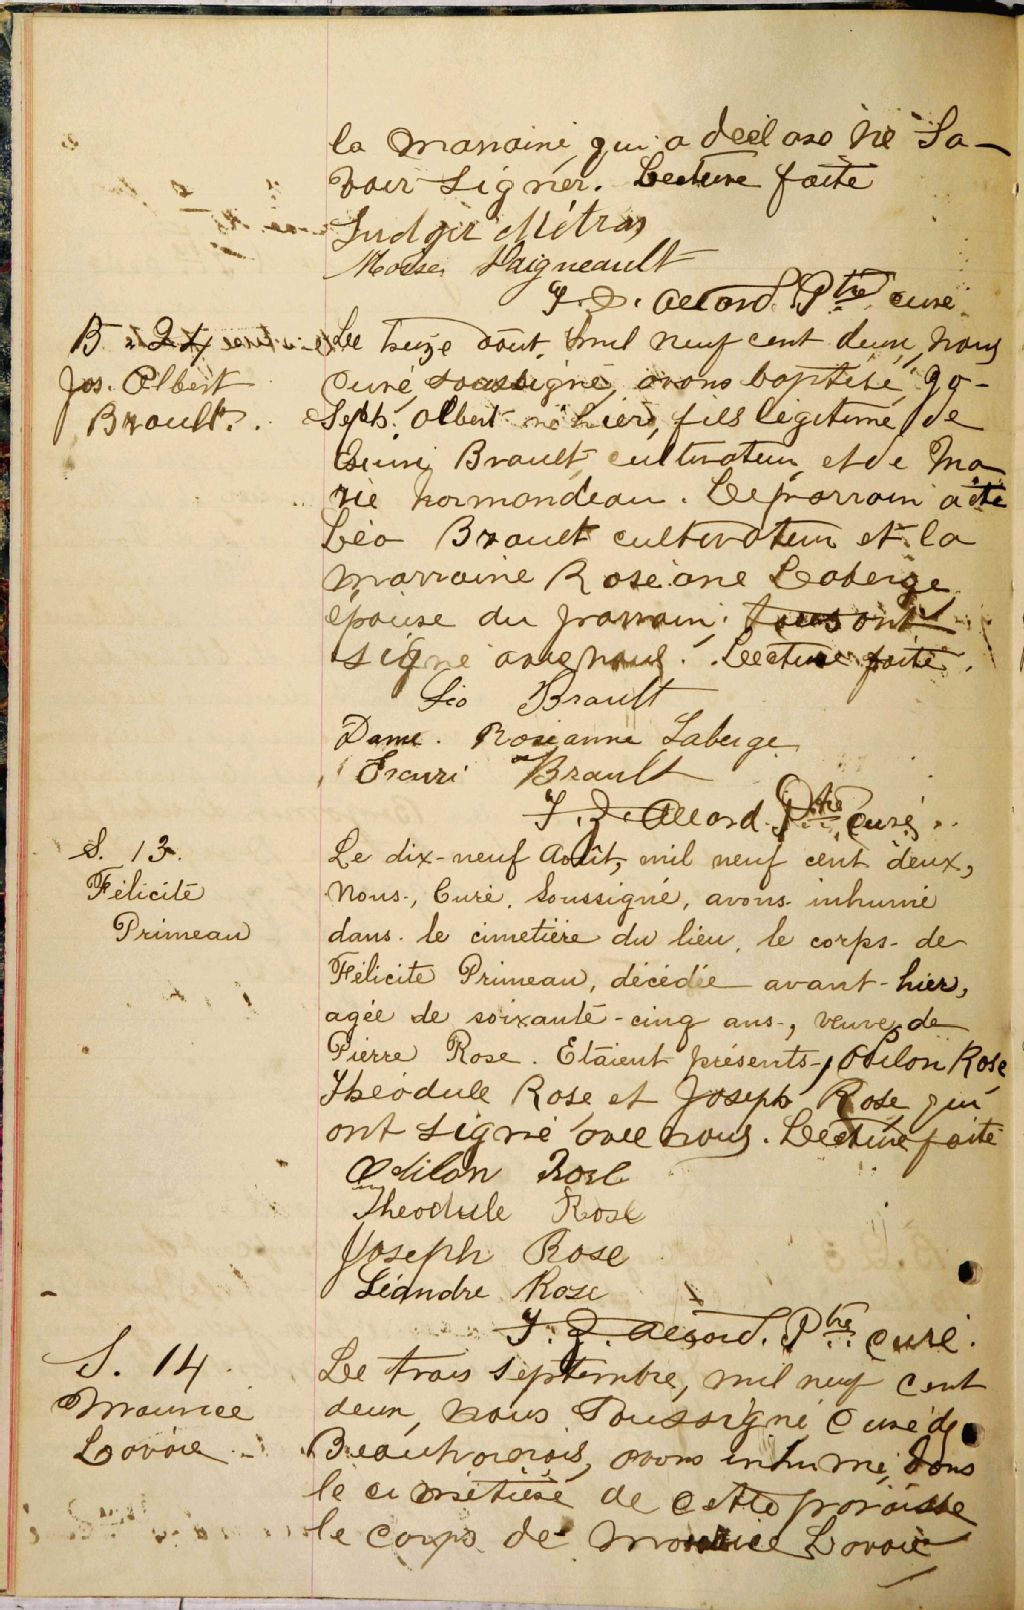 la marraine, qui a déclaré ne Sa-
voir signer. Lecture faite
Ludger Métras
Moïse Daigneault
J. D. Allard Ptre curé
B. 24
Jos. Albert
Brault.
Le treize août, mil neuf cent deux, nous
Curé, soussigné, avons baptisé, Jo-
seph. Albert né hier, fils légitime de
Henri Brault, cultivateur, et de Ma
rie Normandeau. Le parrain a été
Léo Brault cultivateur et la
marraine Roseane Laberge
épouse du parrain; tous ont
signé avec nous. Lecture faite.
Léo Brault
Dame. Roseanna Laberge
Henri Brault
J. D. Allard. Ptre Curé.
S. 13.
Félicité
Primeau
Le dix-neuf Août, mil neuf cent deux,
Nous, Curé, Soussigné, avons inhumé
dans le cimetière du lieu, le corps de
Félicité Primeau, décédée avant-hier,
agée de soixante-cinq ans, veuve de
Pierre Rose. Etaient présents, Odilon Rose,
Théodule Rose, et Joseph Rose, qui
ont signé avec nous. Lecture faite
Odilon Rose
Theodule Rose
Joseph Rose
Léandre Rose
J. D. Allard. Ptre curé.
S. 14
Maurice
Lavoie
Le trois septembre, mil neuf cent
deux, nous Soussigné, Curé de
Beauharnois, avons inhumé, dans
le cimetière de cette paroisse
le corps de Maurice Lavoie